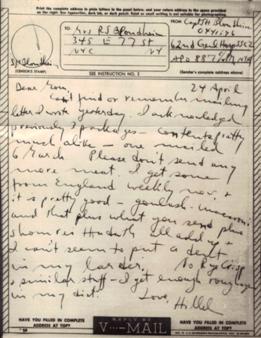 Print the complete address in plain letters in the panel below, and your return address in the space provided on
the right. Use typewriter, dark ink, or dark pencil. Faint or small writing is not suitable for photographing.
TO:
Mrs RS Blondheim
345 E 77 St
NYC NY
From
Capt H Blondheim
62nd Gen Hosp
APO
(CENSOR'S STAMP)
SEE INSTRUCTION NO. 2
(Sender's complete address above)
24 April
Dear Mom,
Can't find or remember mailing
letter I wrote yesterday. I acknowledged
previously 2 packages — contents pretty
much alike — one mailed
6 March. Please don't send any
more meat. I get some
from England weekly now, &
it is pretty good — goulash,
and that plus what you send plus
I can't seem to put a dent
in my larder. No
& similar stuff — I get enough roughage
in my diet.
Love, Hill
HAVE YOU FILLED IN COMPLETE
ADDRESS AT TOP?
REPLY BY
V···—MAIL
HAVE YOU FILLED IN COMPLETE
ADDRESS AT TOP?